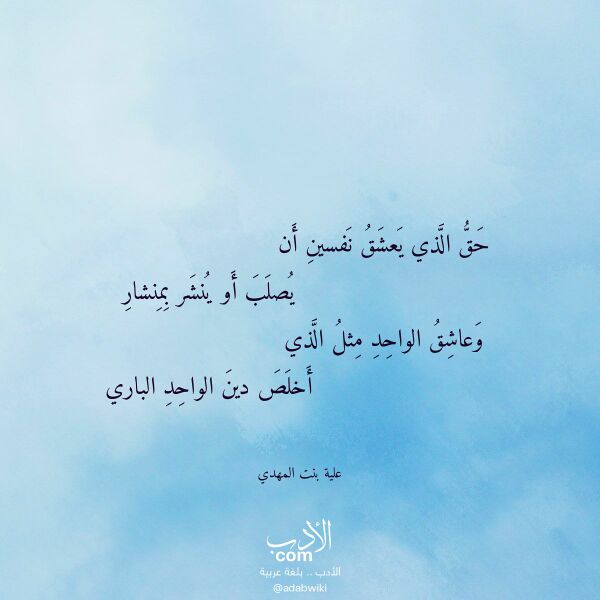 حَقُّ الَّذي يَعشَقُ نَفسينِ أَن
يُصلَبَ أَو يُنشَر بِمِنشارِ
وَعاشِقُ الواحِدِ مِثلُ الَّذي
أَخلَصَ دينَ الواحِدِ الباري
علية بنت المهدي
الأدب
com
الأدب .. بلغة عربية
@adabwiki